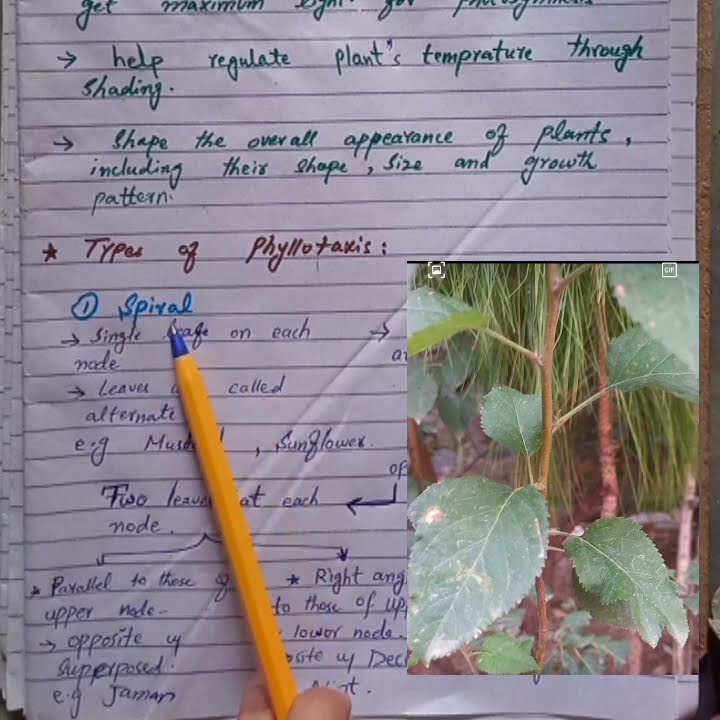 get maximum light for photosynthesis
→ help regulate plant's temprature through
shading.
→ Shape the overall appearance of plants,
including their shape, size and growth
pattern.
* Types of Phyllotaxis:
① Spiral
→ Single leafe on each
node
→ Leaves called
alternate
e.g , Sunflower.
→
Two leaves at each
node.
* Parallel to those of
upper node.
→ opposite w/
Superposed.
e.g Jaman
* Right
to those of
lower node.
w/
Mint.
GIF